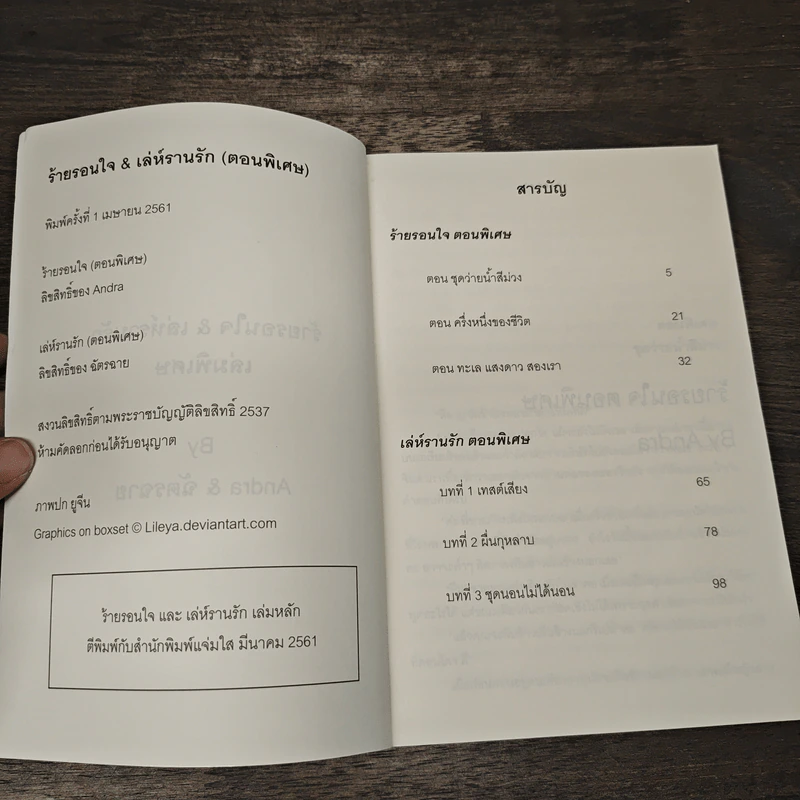 ร้ายรอนใจ & เล่ห์รานรัก (ตอนพิเศษ)
พิมพ์ครั้งที่ 1 เมษายน 2561
ร้ายรอนใจ (ตอนพิเศษ)
ลิขสิทธิ์ของ Andra
เล่ห์รานรัก (ตอนพิเศษ)
ลิขสิทธิ์ของ ฉัตรฉาย
สงวนลิขสิทธิ์ตามพระราชบัญญัติลิขสิทธิ์ 2537
ห้ามคัดลอกก่อนได้รับอนุญาต
ภาพปก ยูจีน
Graphics on boxset © Lileya.deviantart.com
ร้ายรอนใจ และ เล่ห์รานรัก เล่มหลัก
ตีพิมพ์กับสำนักพิมพ์แจ่มใส มีนาคม 2561
สารบัญ
ร้ายรอนใจ ตอนพิเศษ
ตอน ชุดว่ายน้ำสีม่วง 5
ตอน ครึ่งหนึ่งของชีวิต 21
ตอน ทะเล แสงดาว สองเรา 32
เล่ห์รานรัก ตอนพิเศษ
บทที่ 1 เทสต์เสียง 65
บทที่ 2 ผื่นกุหลาบ 78
บทที่ 3 ชุดนอนไม่ได้นอน 98